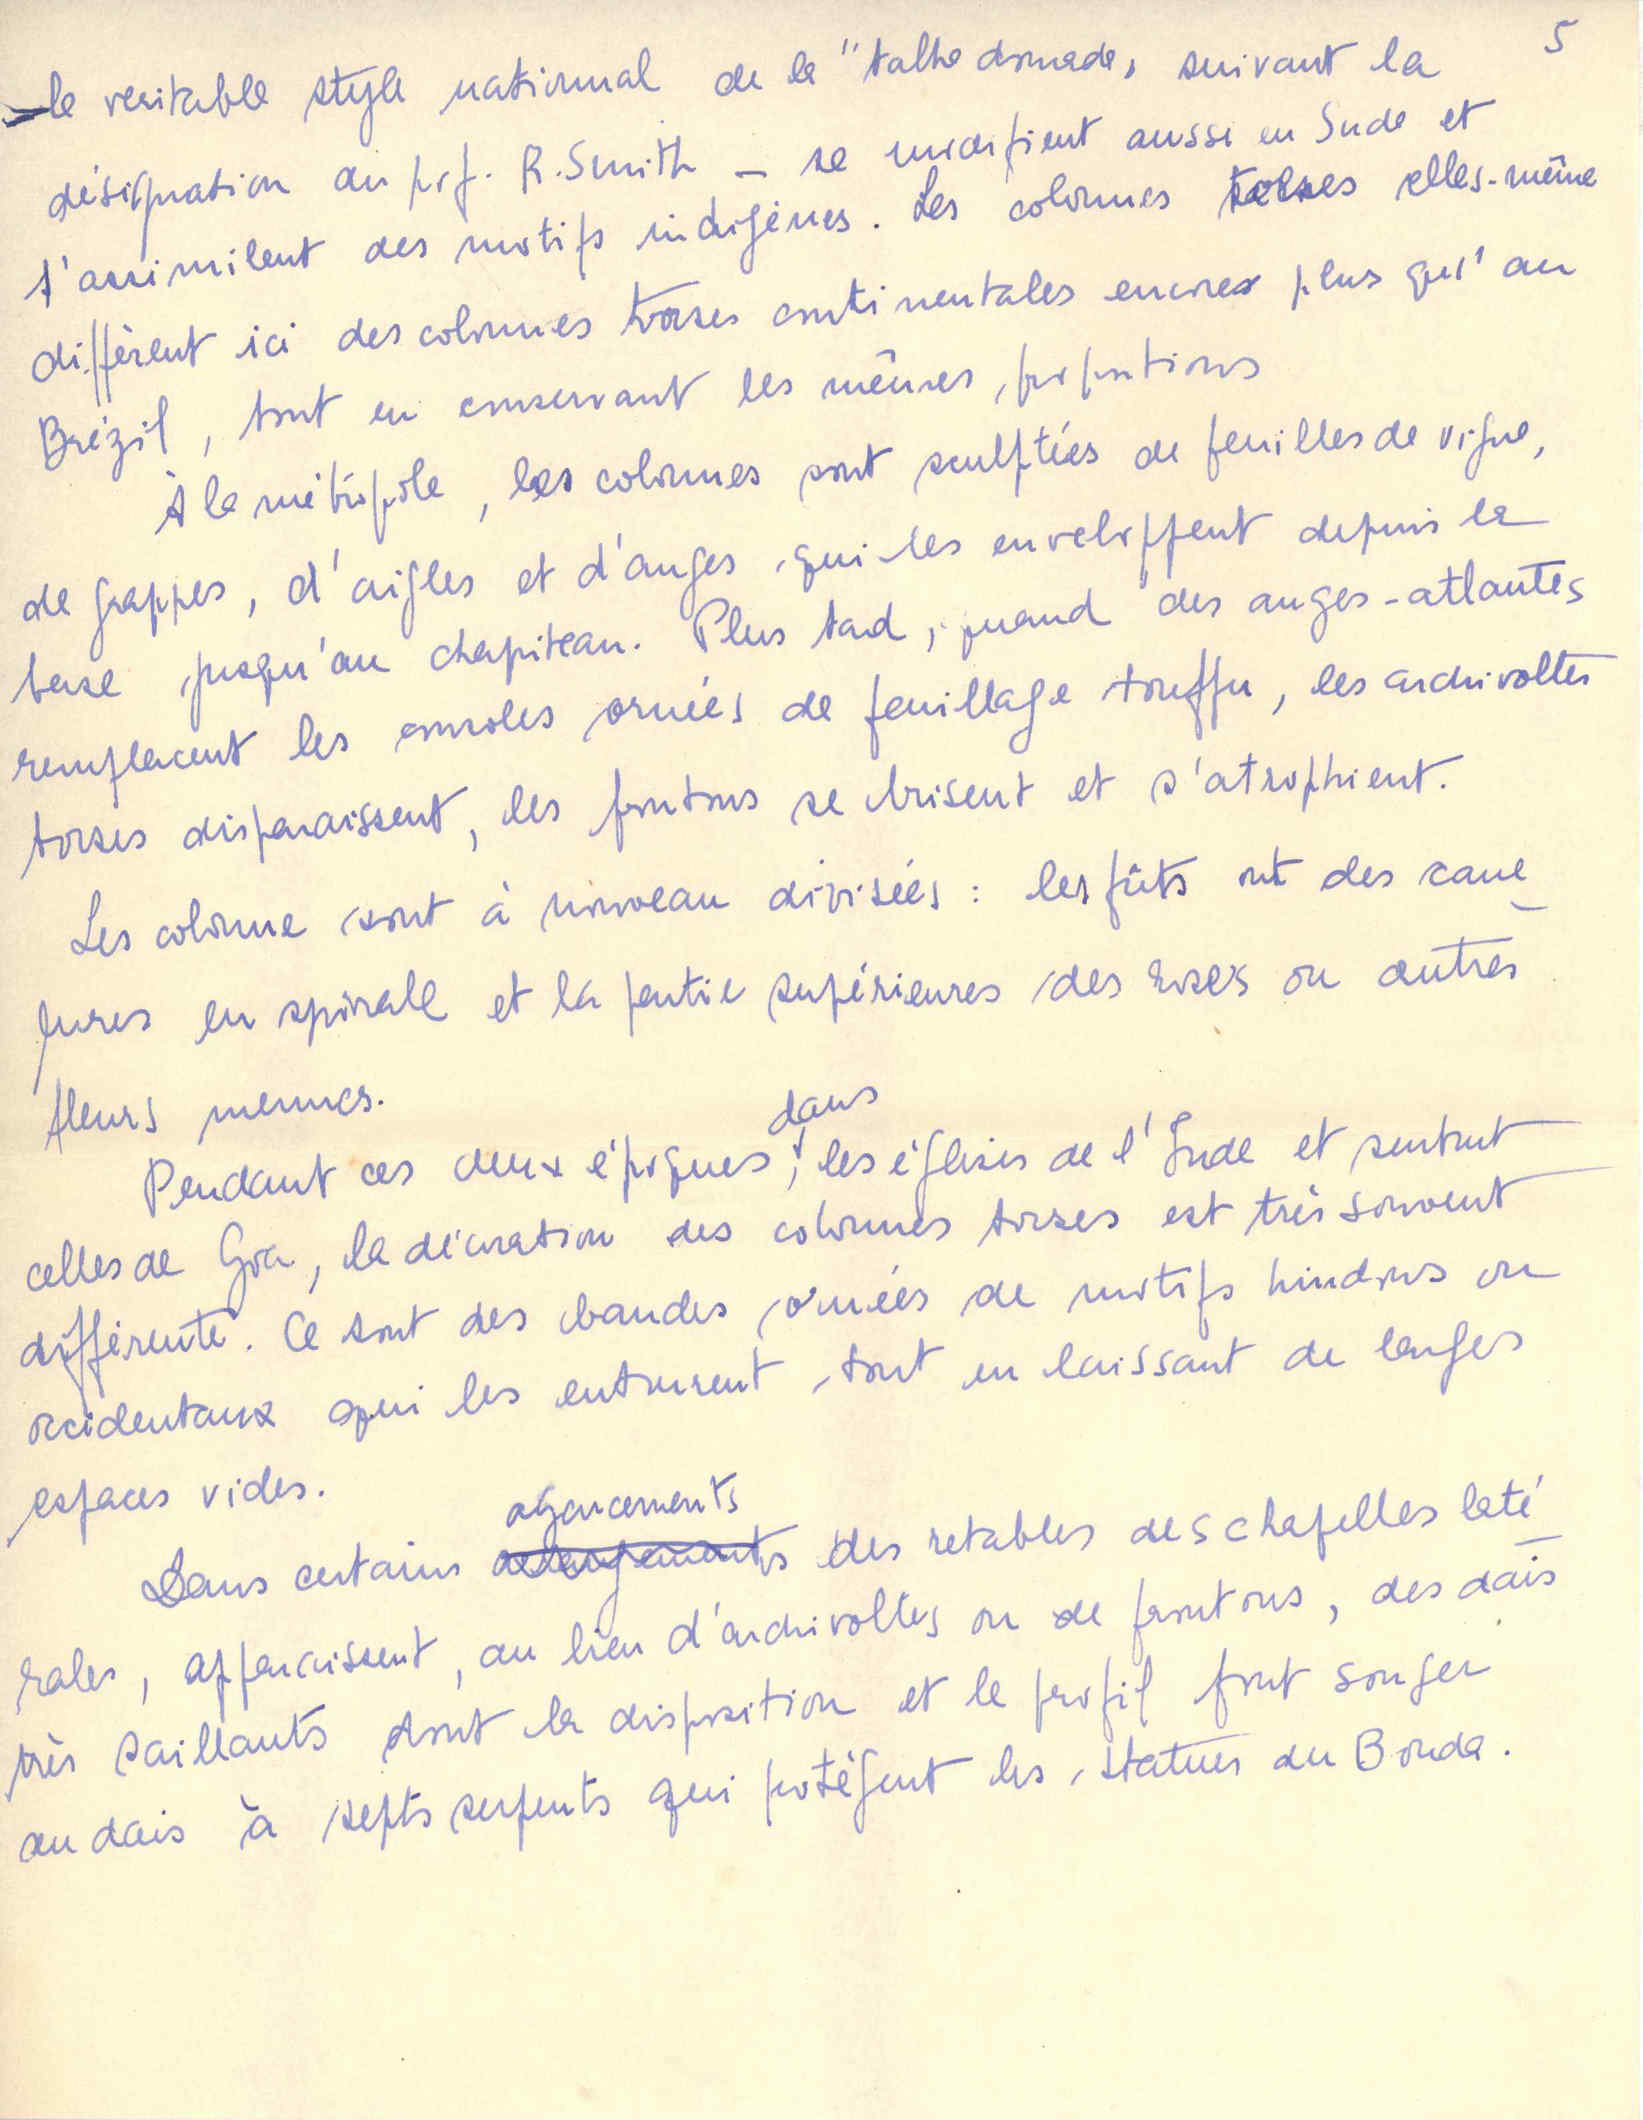 5
– le veritable style national de la "talha dourada, suivant la
désignation du prof. R. Smith – se modifient aussi en Inde et
s'assimilent des motifs indigènes. Les colonnes torses elles-même
diffèrent ici des colonnes torses continentales encore plus qu'au
Brézil, tout en conservant les mêmes proportions
À la métropole, les colonnes sont sculptées de feuilles de vigne,
de grappes, d'aigles et d'anges qui les enveloppent depuis la
base jusqu'au chapiteau. Plus tard, quand des anges-atlantes
remplacent les consoles ornées de feuillage touffu, les archivoltes
torses disparaissent, les frontons se brisent et s'atrophient.
Les colonne sont à nouveau divisées : les fûts ont des cane
lures en spirale et la partie supérieures des roses ou autres
fleurs menues.
Pendant ces deux époques, dans les églises de l'Inde et surtout
celles de Goa, la décoration des colonnes torses est très souvent
différente. Ce sont des bandes ornées de motifs hindous ou
occidentaux qui les entourent, tout en laissant de larges
espaces vides.
Dans certains agencements des retables des chapelles laté
rales, apparaissent, au lieu d'archivoltes ou de frontons, des dais
très saillants dont la disposition et le profil font songer
au dais à septs serpents qui protégent les statues du Bouda.